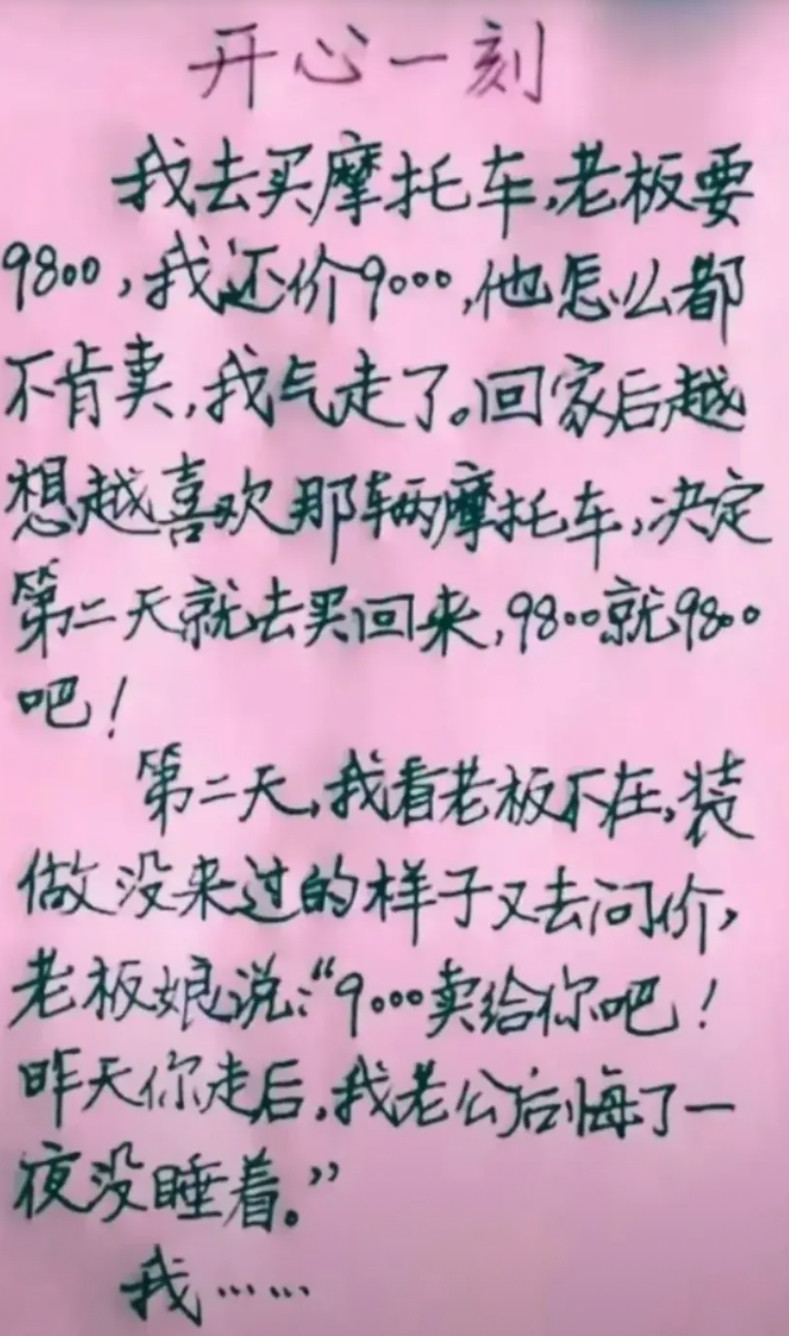 开心一刻
我去买摩托车,老板要
9800,我还价9000,他怎么都
不肯卖,我气走了。回家后越
想越喜欢那辆摩托车,决定
第二天就去买回来,9800就9800
吧!
第二天,我看老板不在,装
做没来过的样子又去问价,
老板娘说:“9000卖给你吧!
昨天你走后,我老公后悔了一
夜没睡着。”
我……